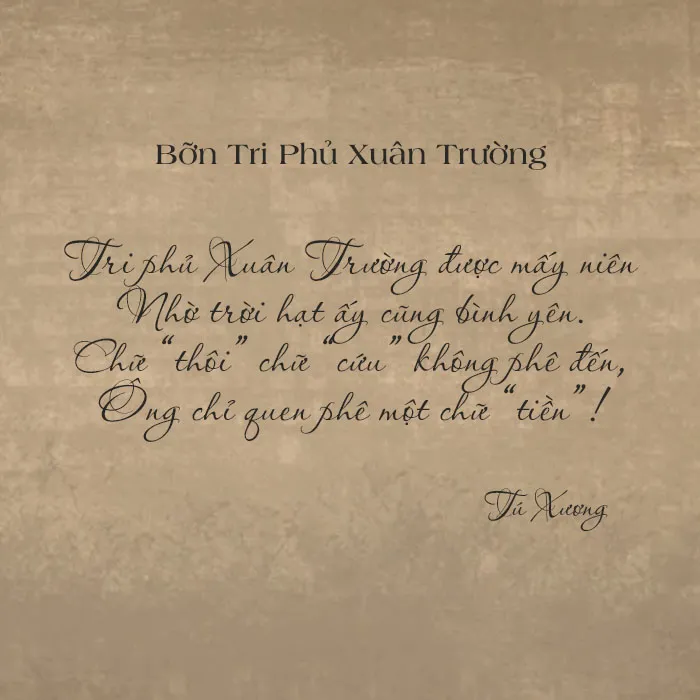 Bỡn Tri Phủ Xuân Trường
Tri phủ Xuân Trường được mấy niên
Nhờ trời hạt ấy cũng bình yên.
Chữ “thôi” chữ “cứu” không phê đến,
Ông chỉ quen phê một chữ “tiền”!
Tú Xương